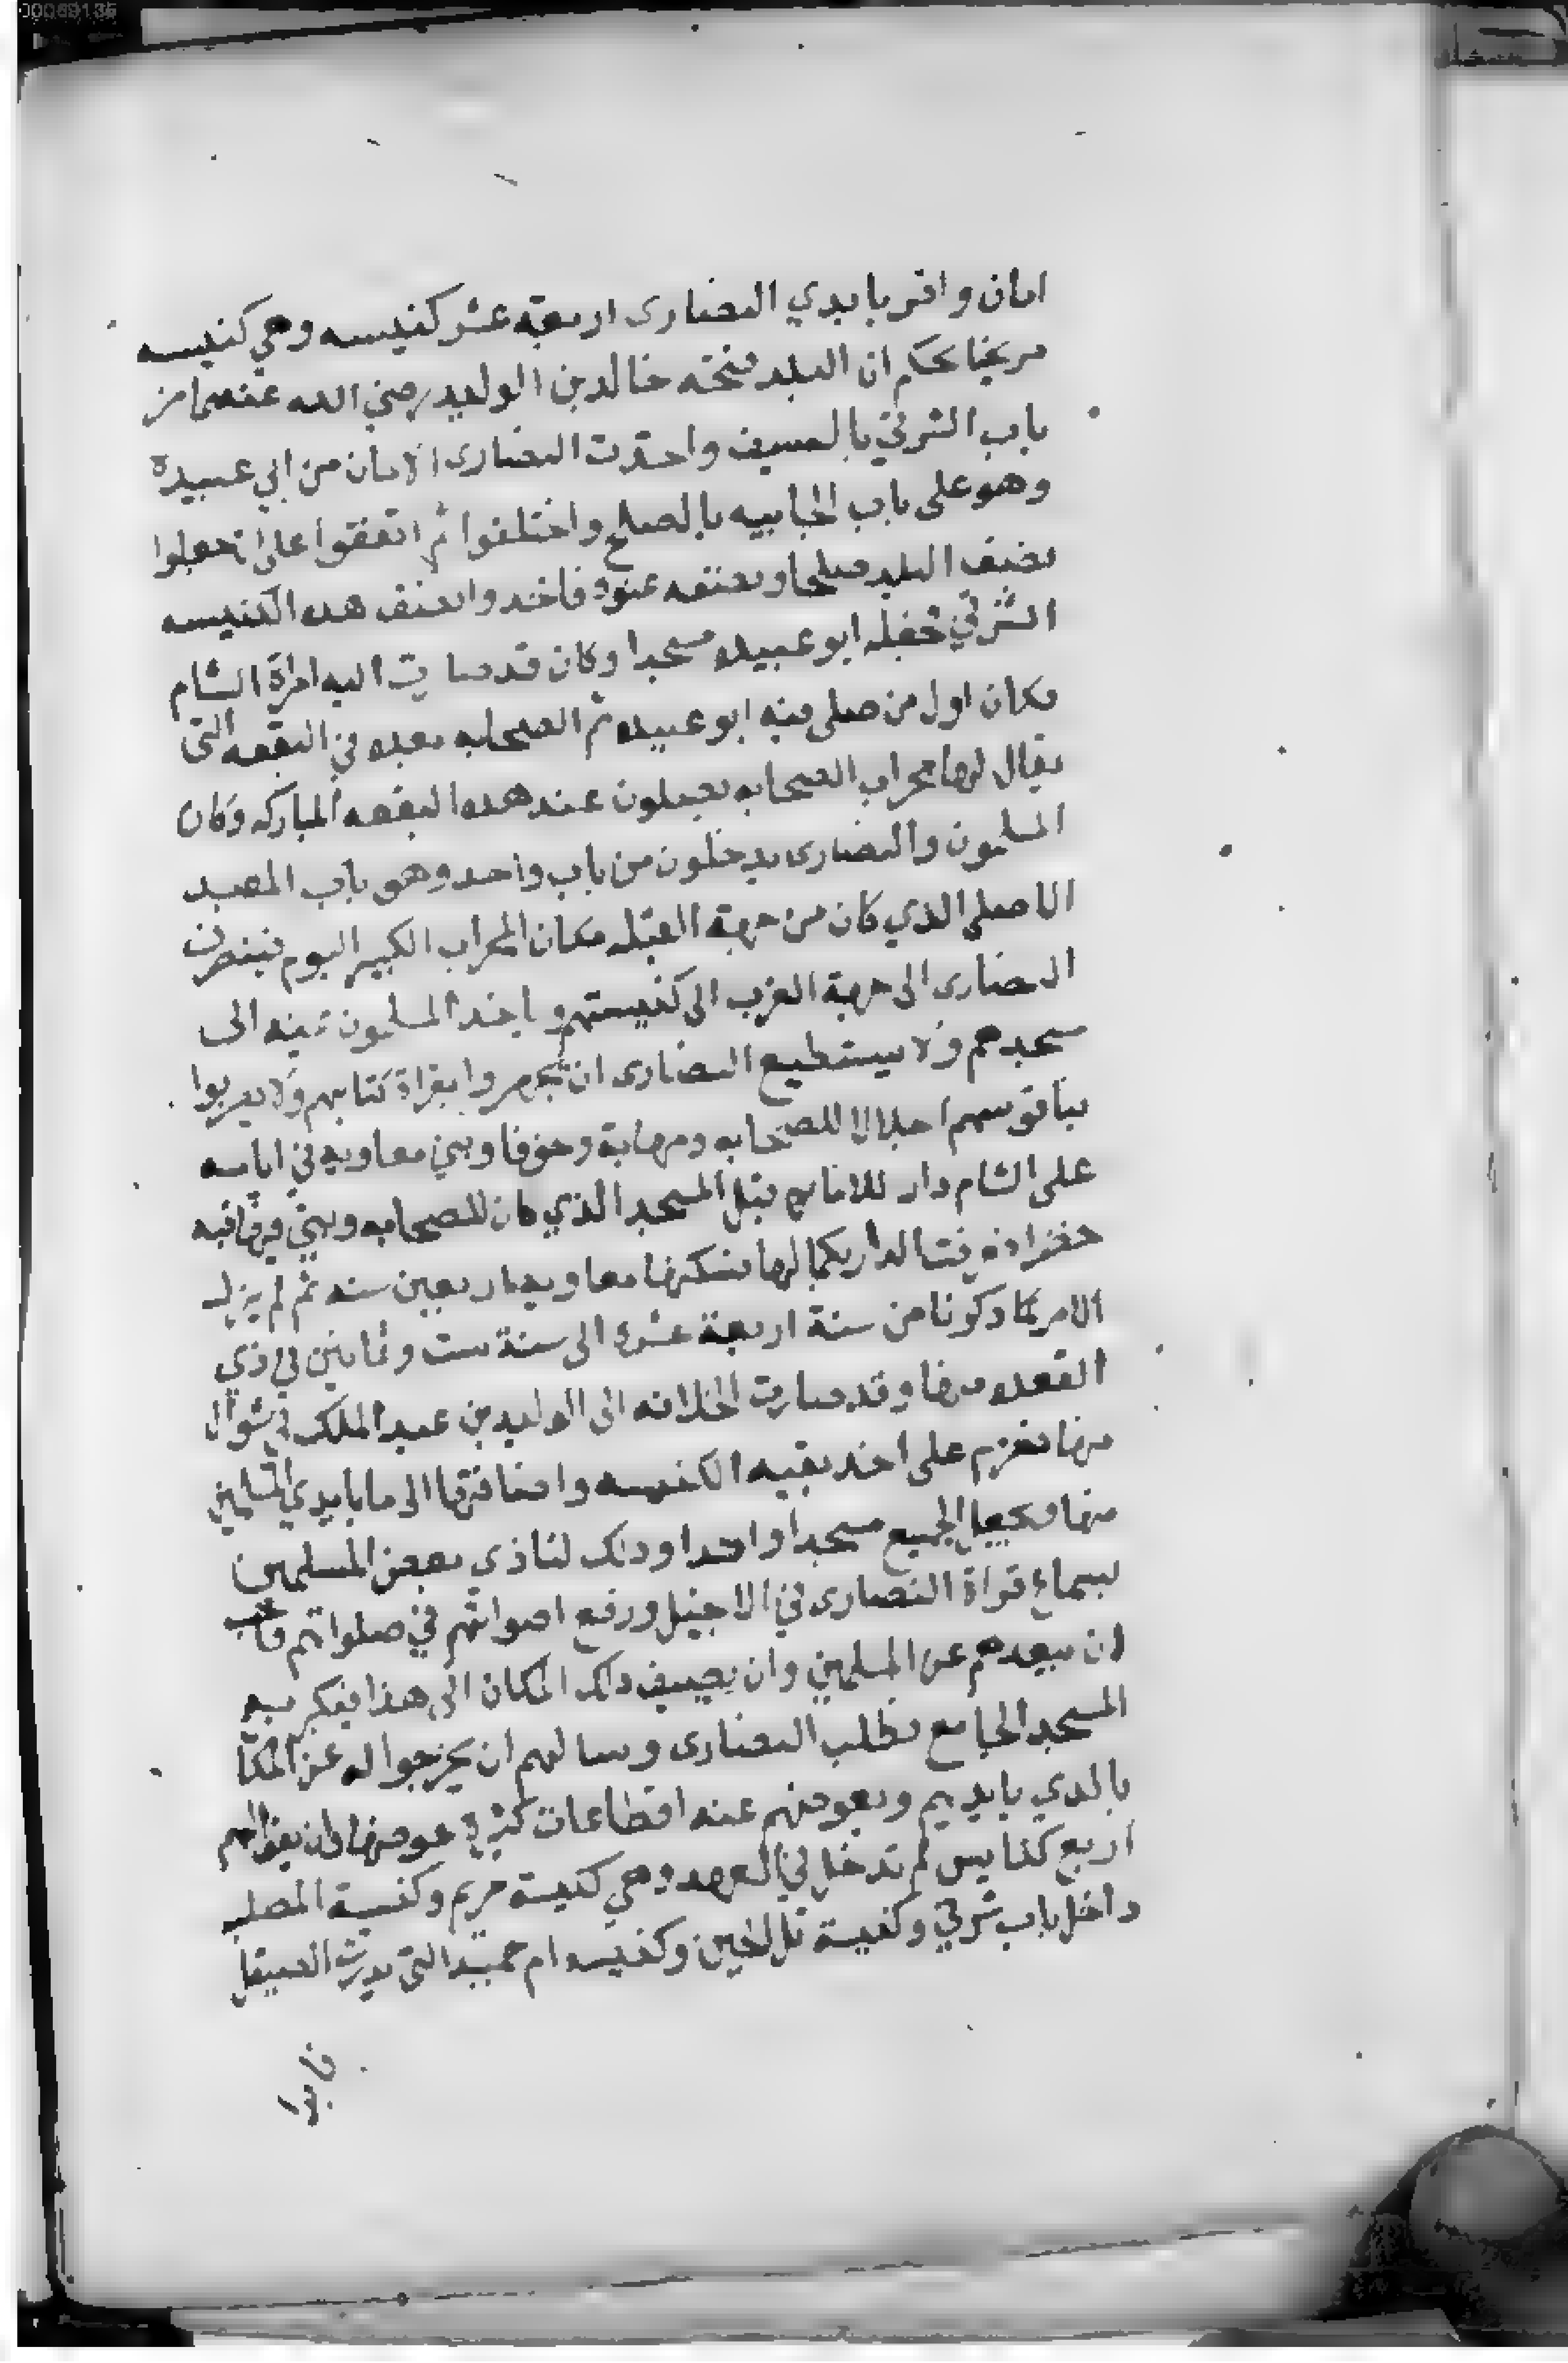 امان واقر بايدي النصارى اربعة عشر كنيسه وهي كنيسه
مريحنا بحكم ان البلد فتحه خالد بن الوليد رضي الله عنهما من
باب الشرقي بالسيف واخذت النصارى الامان من ابي عبيدة
وهو على باب الجابيه بالصلح واختلفوا ثم اتفقوا على ان جعلوا
نصف البلد صلحا ونصفه عنوة فاخدوا نصف هده الكنيسه
الشرقي فجعله ابو عبيده مسجدا وكان قد صارت اليه امرة الشام
فكان اول من صلى فيه ابو عبيده ثم الصحابه بعده في البقعه التى
يقال لها محراب الصحابه يصلون عند هده البقعه المباركه وكان
المسلمون والنصارى يدخلون من باب واحد وهو باب المعبد
الاصلي الذي كان من جهة القبله مكان المحراب الكبير اليوم فينصرف
النصارى الى جهة الغرب الى كنيستهم وياخد المسلمون يمينه الى
مسجدهم ولا يستطيع النصارى ان يجهروا بقراة كتابهم ولا يضربوا
بناقوسهم اجلالا للصحابه ومهابة وخوفا وبنى معاويه في ايامه
على الشام دار للاماره قبل المسجد الذي كان للصحابه وبنى فيها قبه
خضرا فسمت الدار بكمالها فسكنها معاويه اربعين سنه ثم لم يزل
الامر كما دكرنا من سنة اربعة عشره الى سنة ست وثمانين في ذي
القعده منها وقد صارت الخلافه الى الوليد بن عبد الملك في شوال
منها فعزم على اخد بقيه الكنيسه واضافتها الى ما بايدي المسلمين
منها وجعل الجميع مسجدا واحدا ودلك لتاذي بعض المسلمين
بسماع قراة النصارى في الانجيل ورفع اصواتهم في صلواتهم فاحب
ان يبعدهم عن المسلمين وان يضيف دلك المكان الى هذا فيكبر به
المسجد الجامع فطلب النصارى وسالهم ان يخرجوا له عن المكا
بالدي بايديهم ويعوضهم عنه اقطاعات كثيرة عوضها وان يقر لهم
اربع كنايس لم تدخل في العهد وهي كنيسة مريم وكنيسة المصلبه
داخل باب شرقي وكنيسة تل الجبن وكنيسه ام حميد التي بدرب الصيقل